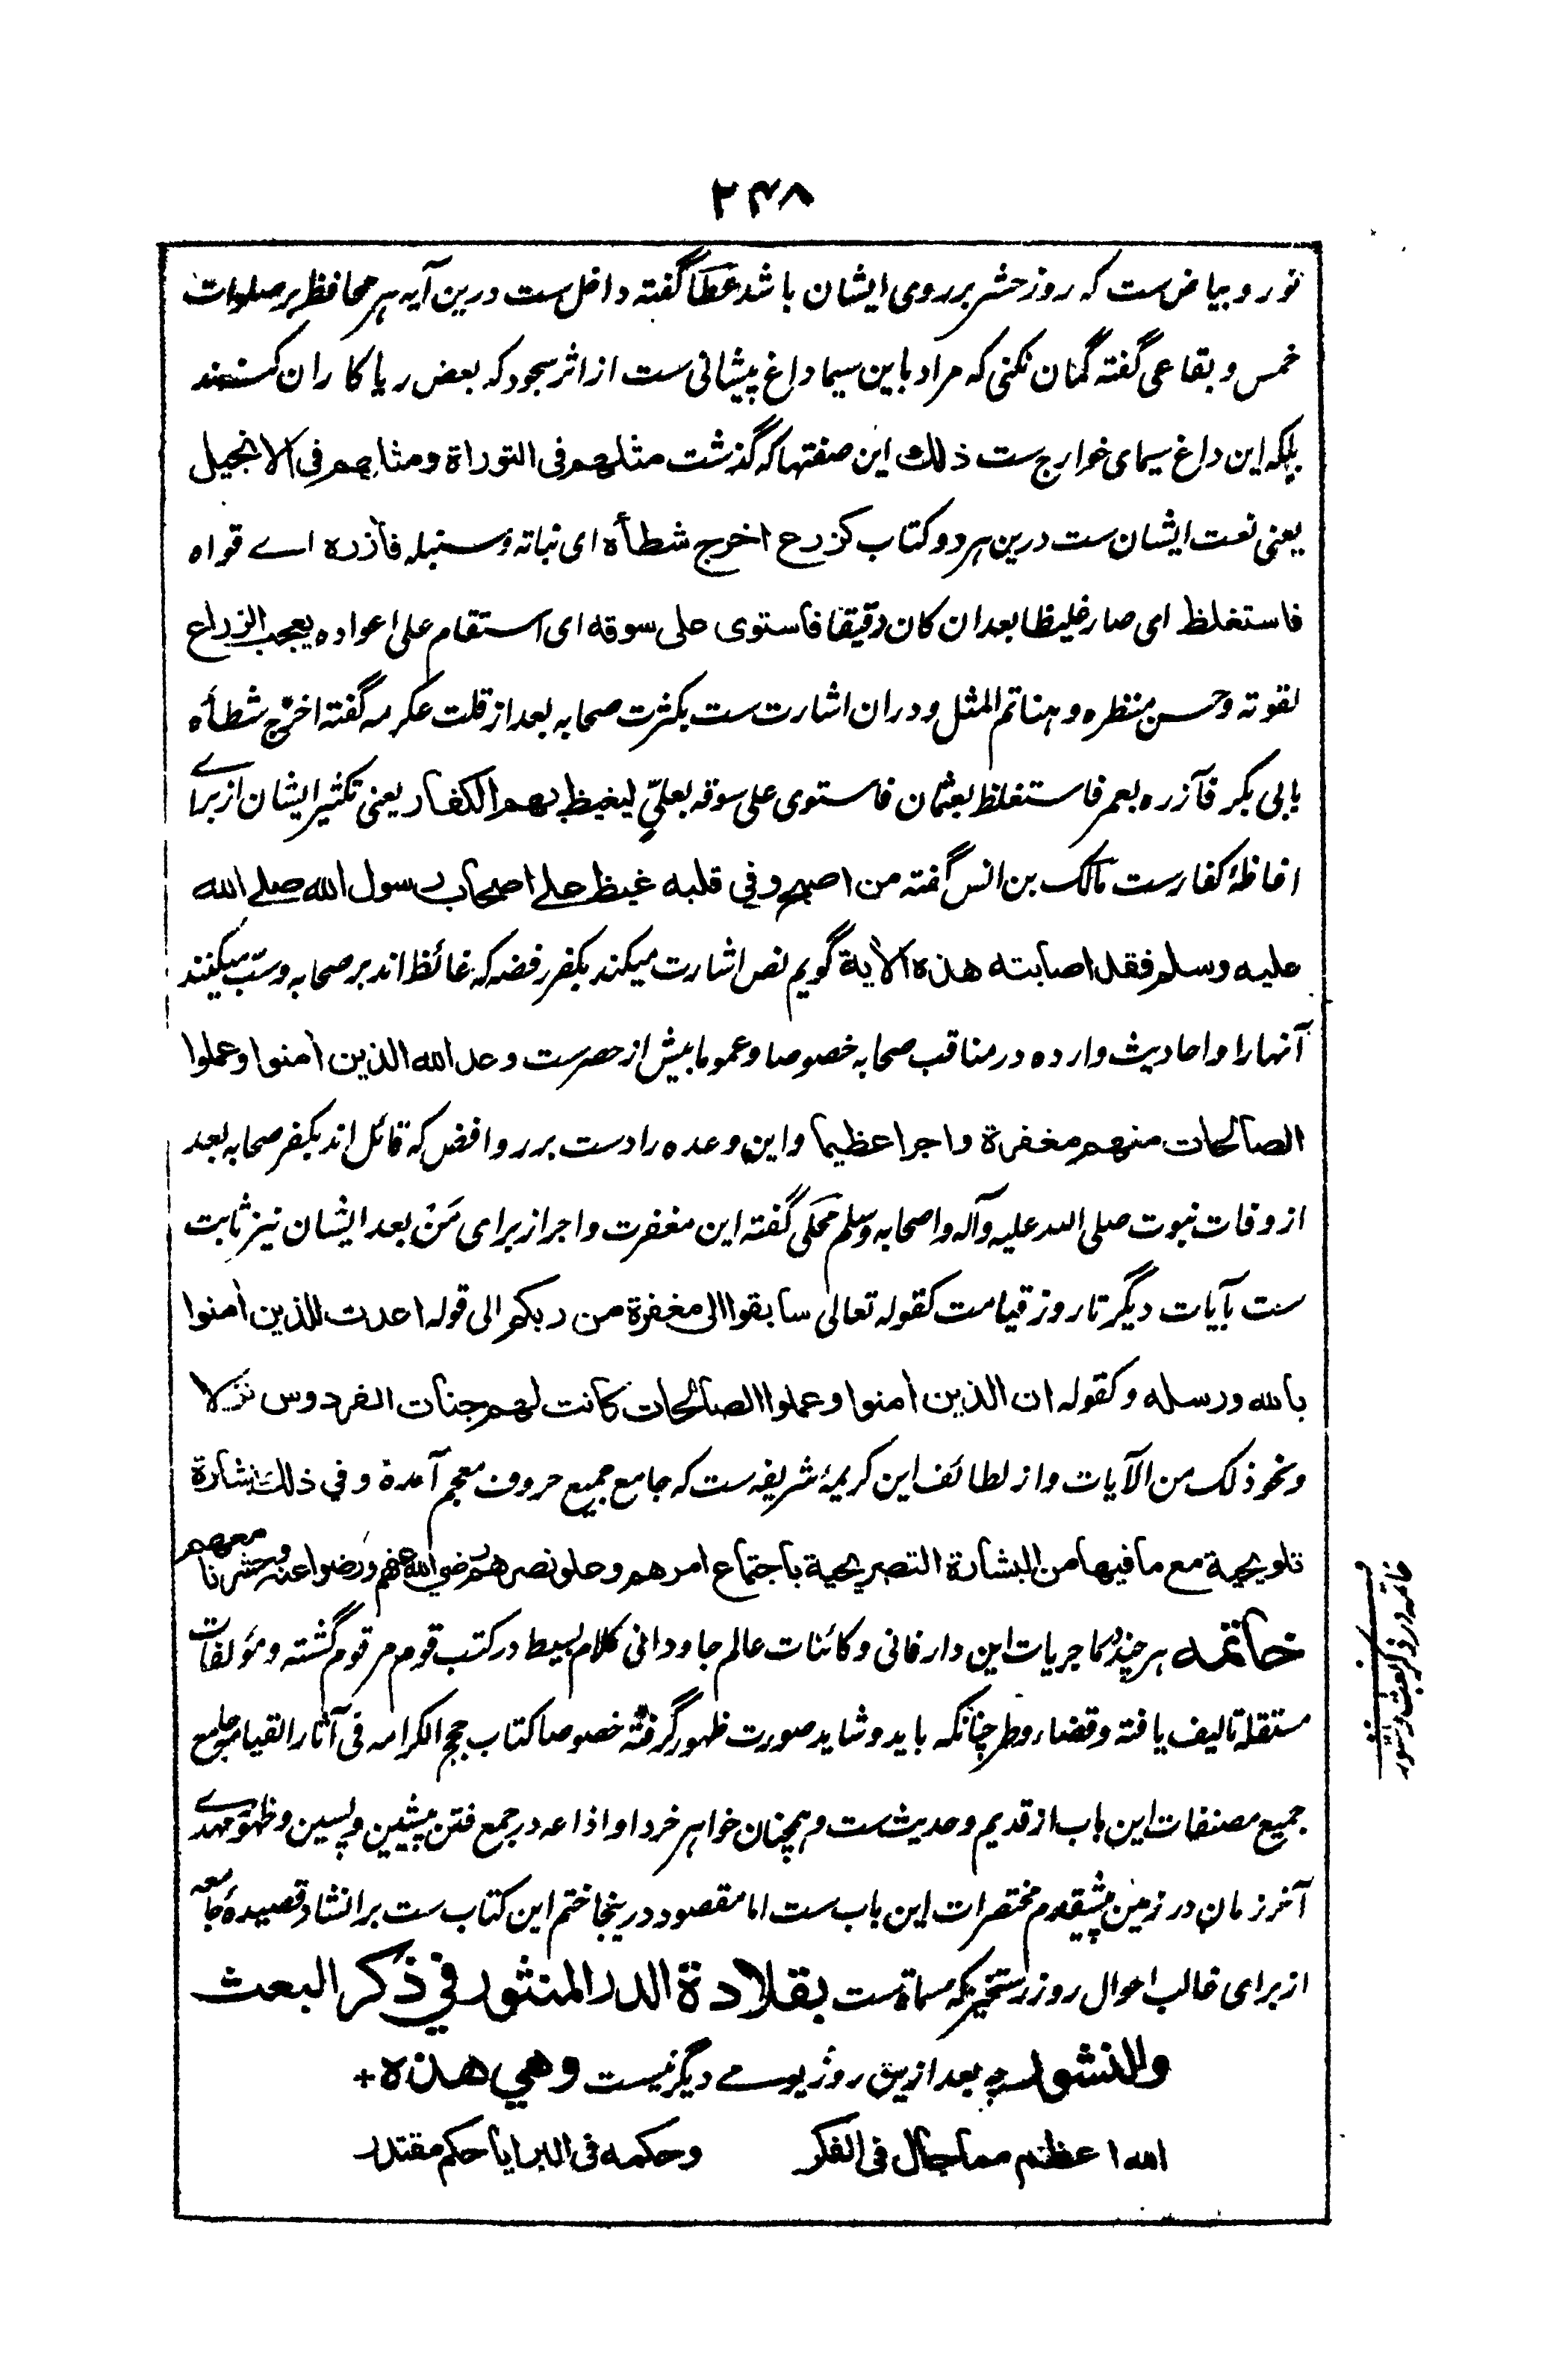 ۲۴۸
نور و بیاض ست که روز حشر بر روی ایشان باشد عطا گفته داخل ست درین آیه هر محافظ بر صلوات
خمس و بقاعی گفته گمان نکنی که مراد باین سیما داغ پیشانی ست از اثر سجود که بعض ریاکاران کنند
بلکه این داغ سیمای خوارج ست ذلك این صفتها که گذشت مثلهم فی التوراة ومثلهم فی الانجیل
یعنی نعت ایشان ست درین هر دو کتاب کزرع اخرج شطأه ای نباته و سنبله فآزره اے قواه
فاستغلظ ای صار غلیظا بعد ان کان دقیقا فاستوی علی سوقه ای استقام علی اعواده یعجب الزراع
لقوته و حسن منظره و هنا تم المثل و دران اشارت ست بکثرت صحابه بعد از قلت عکرمه گفته اخرج شطأه
بابی بکر فآزره بعمر فاستغلظ بعثمان فاستوی علی سوقه بعلیٍّ لیغیظ بهم الکفار یعنی تکثیر ایشان از برائے
اغاظهٔ کفارست مالک بن انس گفته من اصبح وفي قلبه غیظ علی اصحاب رسول الله صلے الله
علیه وسلم فقد اصابته هذه الآیة گویم نص اشارت میکند بکفر رفضه که غائظ اند بر صحابه و سبّ میکنند
آنها را و احادیث وارده در مناقب صحابه خصوصا و عموما بیش از حصرست وعد الله الذین امنوا وعملوا
الصالحات منهم مغفرة واجرا عظیما و این وعده رادست بر روافض که قائل اند بکفر صحابه بعد
از وفات نبوت صلی الله علیه وآله واصحابه وسلم محلی گفته این مغفرت و اجر از برای مَنْ بعد ایشان نیز ثابت
ست بآیات دیگر تا روز قیامت کقوله تعالی سابقوا الی مغفرة من ربکم الی قوله اعدت للذین امنوا
بالله ورسله و کقوله ان الذین امنوا وعملوا الصالحات کانت لهم جنات الفردوس نزلا
ونحو ذلک من الآیات و از لطائف این کریمهٔ شریفه ست که جامع جمیع حروف معجم آمده وفي ذلك بشارة
تلویحیة مع ما فیها من البشارة التصریحیة باجتماع امرهم وعلو نصرهم رضي الله عنهم ورضوا عنه وحشرنا معهم
خاتمه هر چند ماجریات این دار فانی و کائنات عالم جاودانی کلام بسیط در کتب قوم مرقوم گشته و مؤلفات
مستقله تالیف یافته و قضاء وطر چنانکه باید و شاید صورت ظهور گرفته خصوصا کتاب حجج الکرامه فی آثار القیامه جامع
جمیع مصنفات این باب از قدیم و حدیث ست و همچنان خواهر خرد او اذاعه در جمع فتن پیشین و پسین و ظهور مهدے
آخر زمان در زمین پیشقدم مختصرات این باب ست اما مقصود درینجا ختم این کتاب ست بر انشاد قصیدهٔ جامعه
از برای غالب احوال روز رستخیز که مسماة ست بقلادة الدر المنثور في ذکر البعث
والنشور چه بعد ازین روز یومے دیگر نیست وهي هذه +
الله اعظم مما جال فی الفکر وحکمه فی البرایا حکم مقتدر
خاتمه در ذکر بعث و نشور